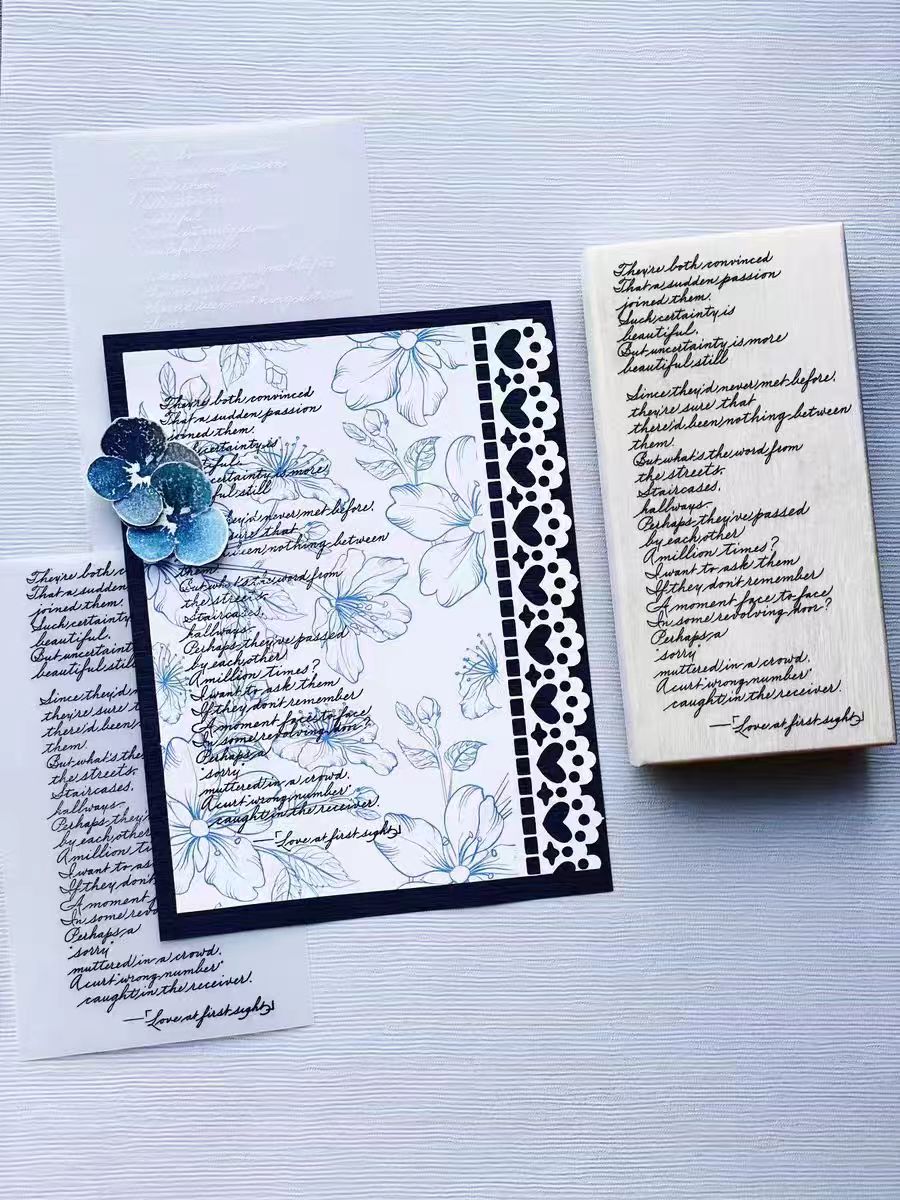 They're both convinced
That a sudden passion
joined them.
certainty is
tiful.
certainty is more
ful still
they'd never met before,
sure that
been nothing between
them.
But what's the word from
the streets.
Staircases,
hallways.
Perhaps they've passed
by each other
A million times?
I want to ask them
If they don't remember
A moment face to face
In some revolving hon?
Perhaps a
"sorry"
muttered in a crowd.
A curt "wrong number"
caught in the receiver.
—「Love at first sight」
They're both c
That a sudden
joined them.
Such certainty
beautiful.
But uncertaint
beautiful still
Since they'd n
they're sure t
there'd been
them.
But what's the
the streets.
Staircases,
hallways.
Perhaps they'
by each other
A million ti
I want to as
If they don't
A moment f
In some revo
Perhaps a
"sorry"
muttered in a crowd.
A curt "wrong number"
caught in the receiver.
—「Love at first sight」
They're both convinced
That a sudden passion
joined them.
Such certainty is
beautiful.
But uncertainty is more
beautiful still
Since they'd never met before,
they're sure that
there'd been nothing between
them.
But what's the word from
the streets.
Staircases,
hallways.
Perhaps they've passed
by each other
A million times?
I want to ask them
If they don't remember
A moment face to face
In some revolving hon?
Perhaps a
"sorry"
muttered in a crowd.
A curt "wrong number"
caught in the receiver.
—「Love at first sight」